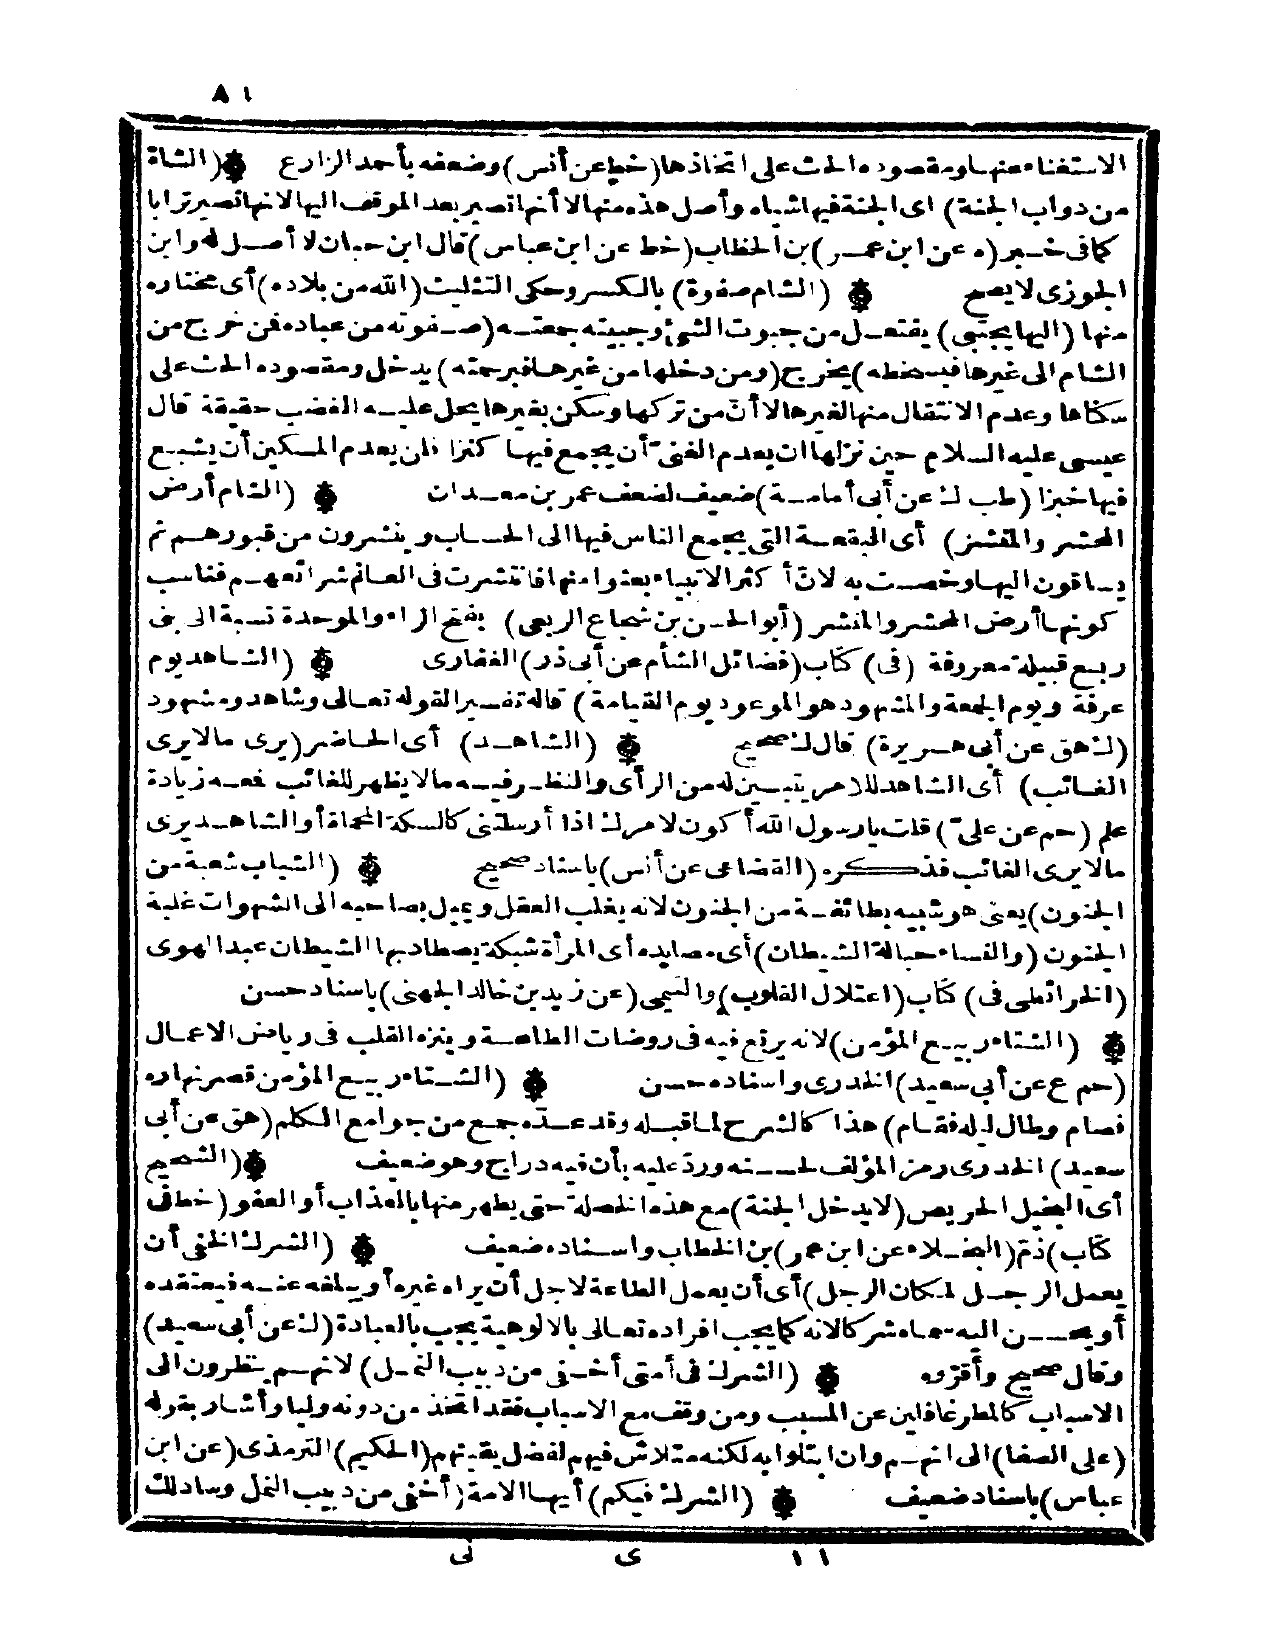 ٨١
الاستغناء عنها ومقصوده الحث على اتخاذها (خط عن أنس) وضعفه بأحمد الزارع ۞ (الشاة
من دواب الجنة) اى الجنة فيها شياه وأصل هذه منها لا أنها تصير بعد الموقف اليها لانها تصير ترابا
كما فى خبر (ه عن ابن عمر) بن الخطاب (خط عن ابن عباس) قال ابن حبان لا أصل له وابن
الجوزى لا يصح ۞ (الشام صفوة) بالكسر وحكى التثليث (الله من بلاده) أى مختاره
منها (اليها يجتبى) يفتعل من جبوت الشئ وجبيته جمعته (صفوته من عباده فمن خرج من
الشام الى غيرها فبسخطه) يخرج (ومن دخلها من غيرها فبرحمته) يدخل ومقصوده الحث على
سكناها وعدم الانتقال منها لغيرها لا أنّ من تركها وسكن بغيرها يحل عليه الغضب حقيقة قال
عيسى عليه السلام حين نزلها ان يعدم الغنىّ أن يجمع فيها كنزا فلن يعدم المسكين أن يشبع
فيها خبزا (طب ك عن أبى أمامة) ضعيف لضعف عمر بن معدان ۞ (الشام أرض
المحشر والمنشر) أى البقعة التى يجمع الناس فيها الى الحساب وينشرون من قبورهم ثم
يساقون اليها وخصت به لانّ أكثر الانبياء بعثوا منها فانتشرت فى العالم شرائعهم فناسب
كونها أرض المحشر والمنشر (أبو الحسن بن شجاع الربعى) بفتح الراء والموحدة نسبة الى بنى
ربيع قبيلة معروفة (فى) كتاب (فضائل الشأم عن أبى ذر) الغفارى ۞ (الشاهد يوم
عرفة ويوم الجمعة والمشهود هو الموعود يوم القيامة) قاله تفسيرا لقوله تعالى وشاهد ومشهود
(ك هق عن أبى هريرة) قال ك صحيح ۞ (الشاهد) أى الحاضر (يرى مالا يرى
الغائب) أى الشاهد للامر يتبين له من الرأى والنظر فيه مالا يظهر للغائب فمعه زيادة
علم (حم عن علىّ) قلت يارسول الله أكون لامرك اذا أرسلتنى كالسكة المحماة أو الشاهد يرى
مالا يرى الغائب فذكره (القضاعى عن أنس) باسناد صحيح ۞ (الشباب شعبة من
الجنون) يعنى هو شبيه بطائفة من الجنون لانه يغلب العقل ويميل بصاحبه الى الشهوات غلبة
الجنون (والنساء حبالة الشيطان) أى مصايده أى المرأة شبكة يصطاد بها الشيطان عبد الهوى
(الخرائطى فى) كتاب (اعتلال القلوب) والتيمى (عن زيد بن خالد الجهنى) باسناد حسن
۞ (الشتاء ربيع المؤمن) لانه يرتع فيه فى روضات الطاعة وينزه القلب فى رياض الاعمال
(حم ع عن أبى سعيد) الخدرى واسناده حسن ۞ (الشتاء ربيع المؤمن قصر نهاره
فصام وطال ليله فقام) هذا كالشرح لما قبله وقد عدّه جمع من جوامع الكلم (هق عن أبى
سعيد) الخدرى ورمز المؤلف لحسنه وردّ عليه بأن فيه دراج وهو ضعيف ۞ (الشحيح
أى البخيل الحريص (لا يدخل الجنة) مع هذه الخصلة حتى يطهر منها بالعذاب أو العفو (خط فى
كتاب) ذمّ (البخلاء عن ابن عمر) بن الخطاب واسناده ضعيف ۞ (الشرك الخفى أن
يعمل الرجل لمكان الرجل) أى أن يعمل الطاعة لاجل أن يراه غيره أو يبلغه عنه فيعتقده
أو يحسن اليه سماه شركا لانه كما يجب افراده تعالى بالالوهية يجب بالعبادة (ك عن أبى سعيد)
وقال صحيح وأقرّوه ۞ (الشرك فى أمتى أخفى من دبيب النمل) لانهم ينظرون الى
الاسباب كالمطر غافلين عن المسبب ومن وقف مع الاسباب فقد اتخذ من دونه وليا وأشار بقوله
(على الصفا) الى انهم وان ابتلوا به لكنه متلاش فيهم لفضل يقينهم (الحكيم) الترمذى (عن ابن
عباس) باسناد ضعيف ۞ (الشرك فيكم) أيها الامة (أخفى من دبيب النمل وسادلك
١١ ى لى